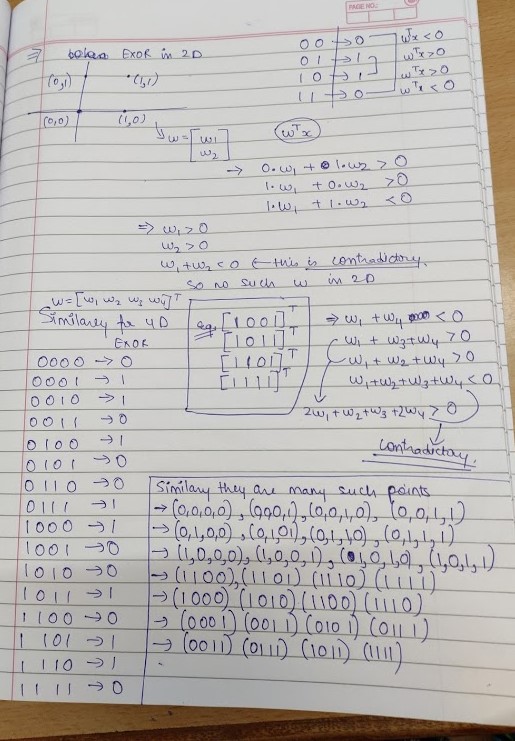 PAGE NO.:
⇒ EXOR in 2D
(0,1) (1,1)
(0,0) (1,0)
0 0 → 0 wᵀx < 0
0 1 → 1 wᵀx > 0
1 0 → 1 wᵀx > 0
1 1 → 0 wᵀx < 0
w = [w₁ w₂] wᵀx
→ 0·w₁ + 1·w₂ > 0
1·w₁ + 0·w₂ > 0
1·w₁ + 1·w₂ < 0
⇒ w₁ > 0
w₂ > 0
w₁ + w₂ < 0 ← this is contradictory.
so no such w in 2D
w = [w₁ w₂ w₃ w₄]ᵀ
Similarly for 4D
EXOR
0000 → 0
0001 → 1
0010 → 1
0011 → 0
0100 → 1
0101 → 0
0110 → 0
0111 → 1
1000 → 1
1001 → 0
1010 → 0
1011 → 1
1100 → 0
1101 → 1
1110 → 1
1111 → 0
eg. [1001]ᵀ
[1011]ᵀ
[1101]ᵀ
[1111]ᵀ
⇒ w₁ + w₄ < 0
w₁ + w₃ + w₄ > 0
w₁ + w₂ + w₄ > 0
w₁ + w₂ + w₃ + w₄ < 0
2w₁ + w₂ + w₃ + 2w₄ > 0
contradictory.
Similary they are many such points
→ (0,0,0,0), (0,0,0,1), (0,0,1,0), (0,0,1,1)
→ (0,1,0,0), (0,1,01), (0,1,1,0), (0,1,1,1)
→ (1,0,0,0), (1,0,0,1), (1,0,1,0), (1,0,1,1)
→ (1100), (1101) (1110) (1111)
→ (1000) (1010) (1100) (1110)
→ (0001) (0011) (0101) (0111)
→ (0011) (0111) (1011) (1111)